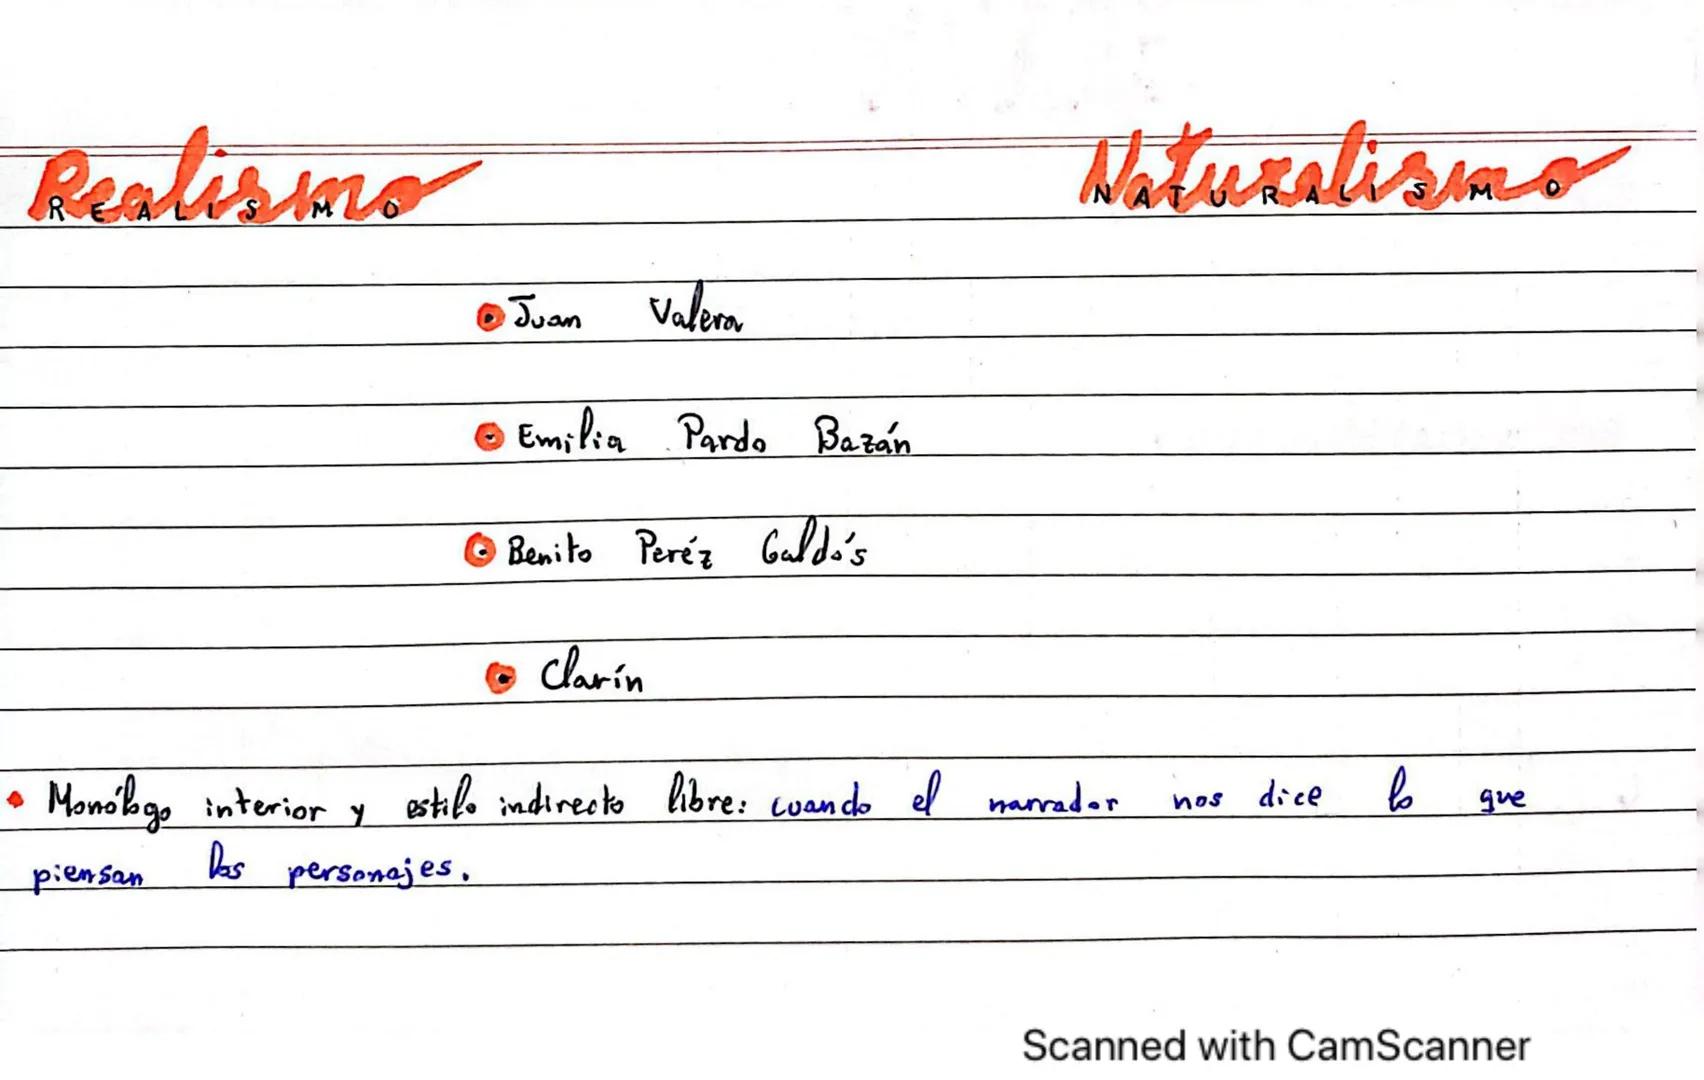 Realismo Naturalismo
REALISMO NATURALISMO
Juan Valera
Emilia Pardo Bazán
Benito Peréz Galdós
Clarín
• Monólogo interior y estilo indirecto libre: cuando el narrador nos dice lo que
piensan los personajes.
Scanned with CamScanner